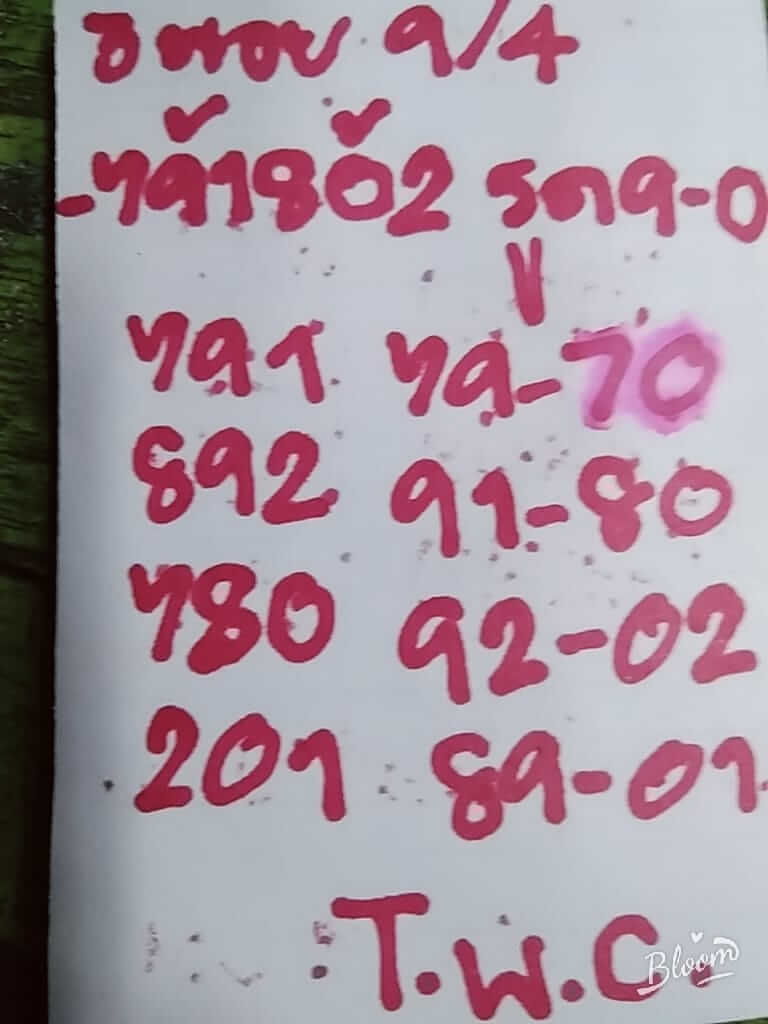 ฮานอย 9/4
-79̌180̌2 รูด9-0
791 79-70
892 91-80
780 92-02
201 89-01
T.พ.C.
Bloom